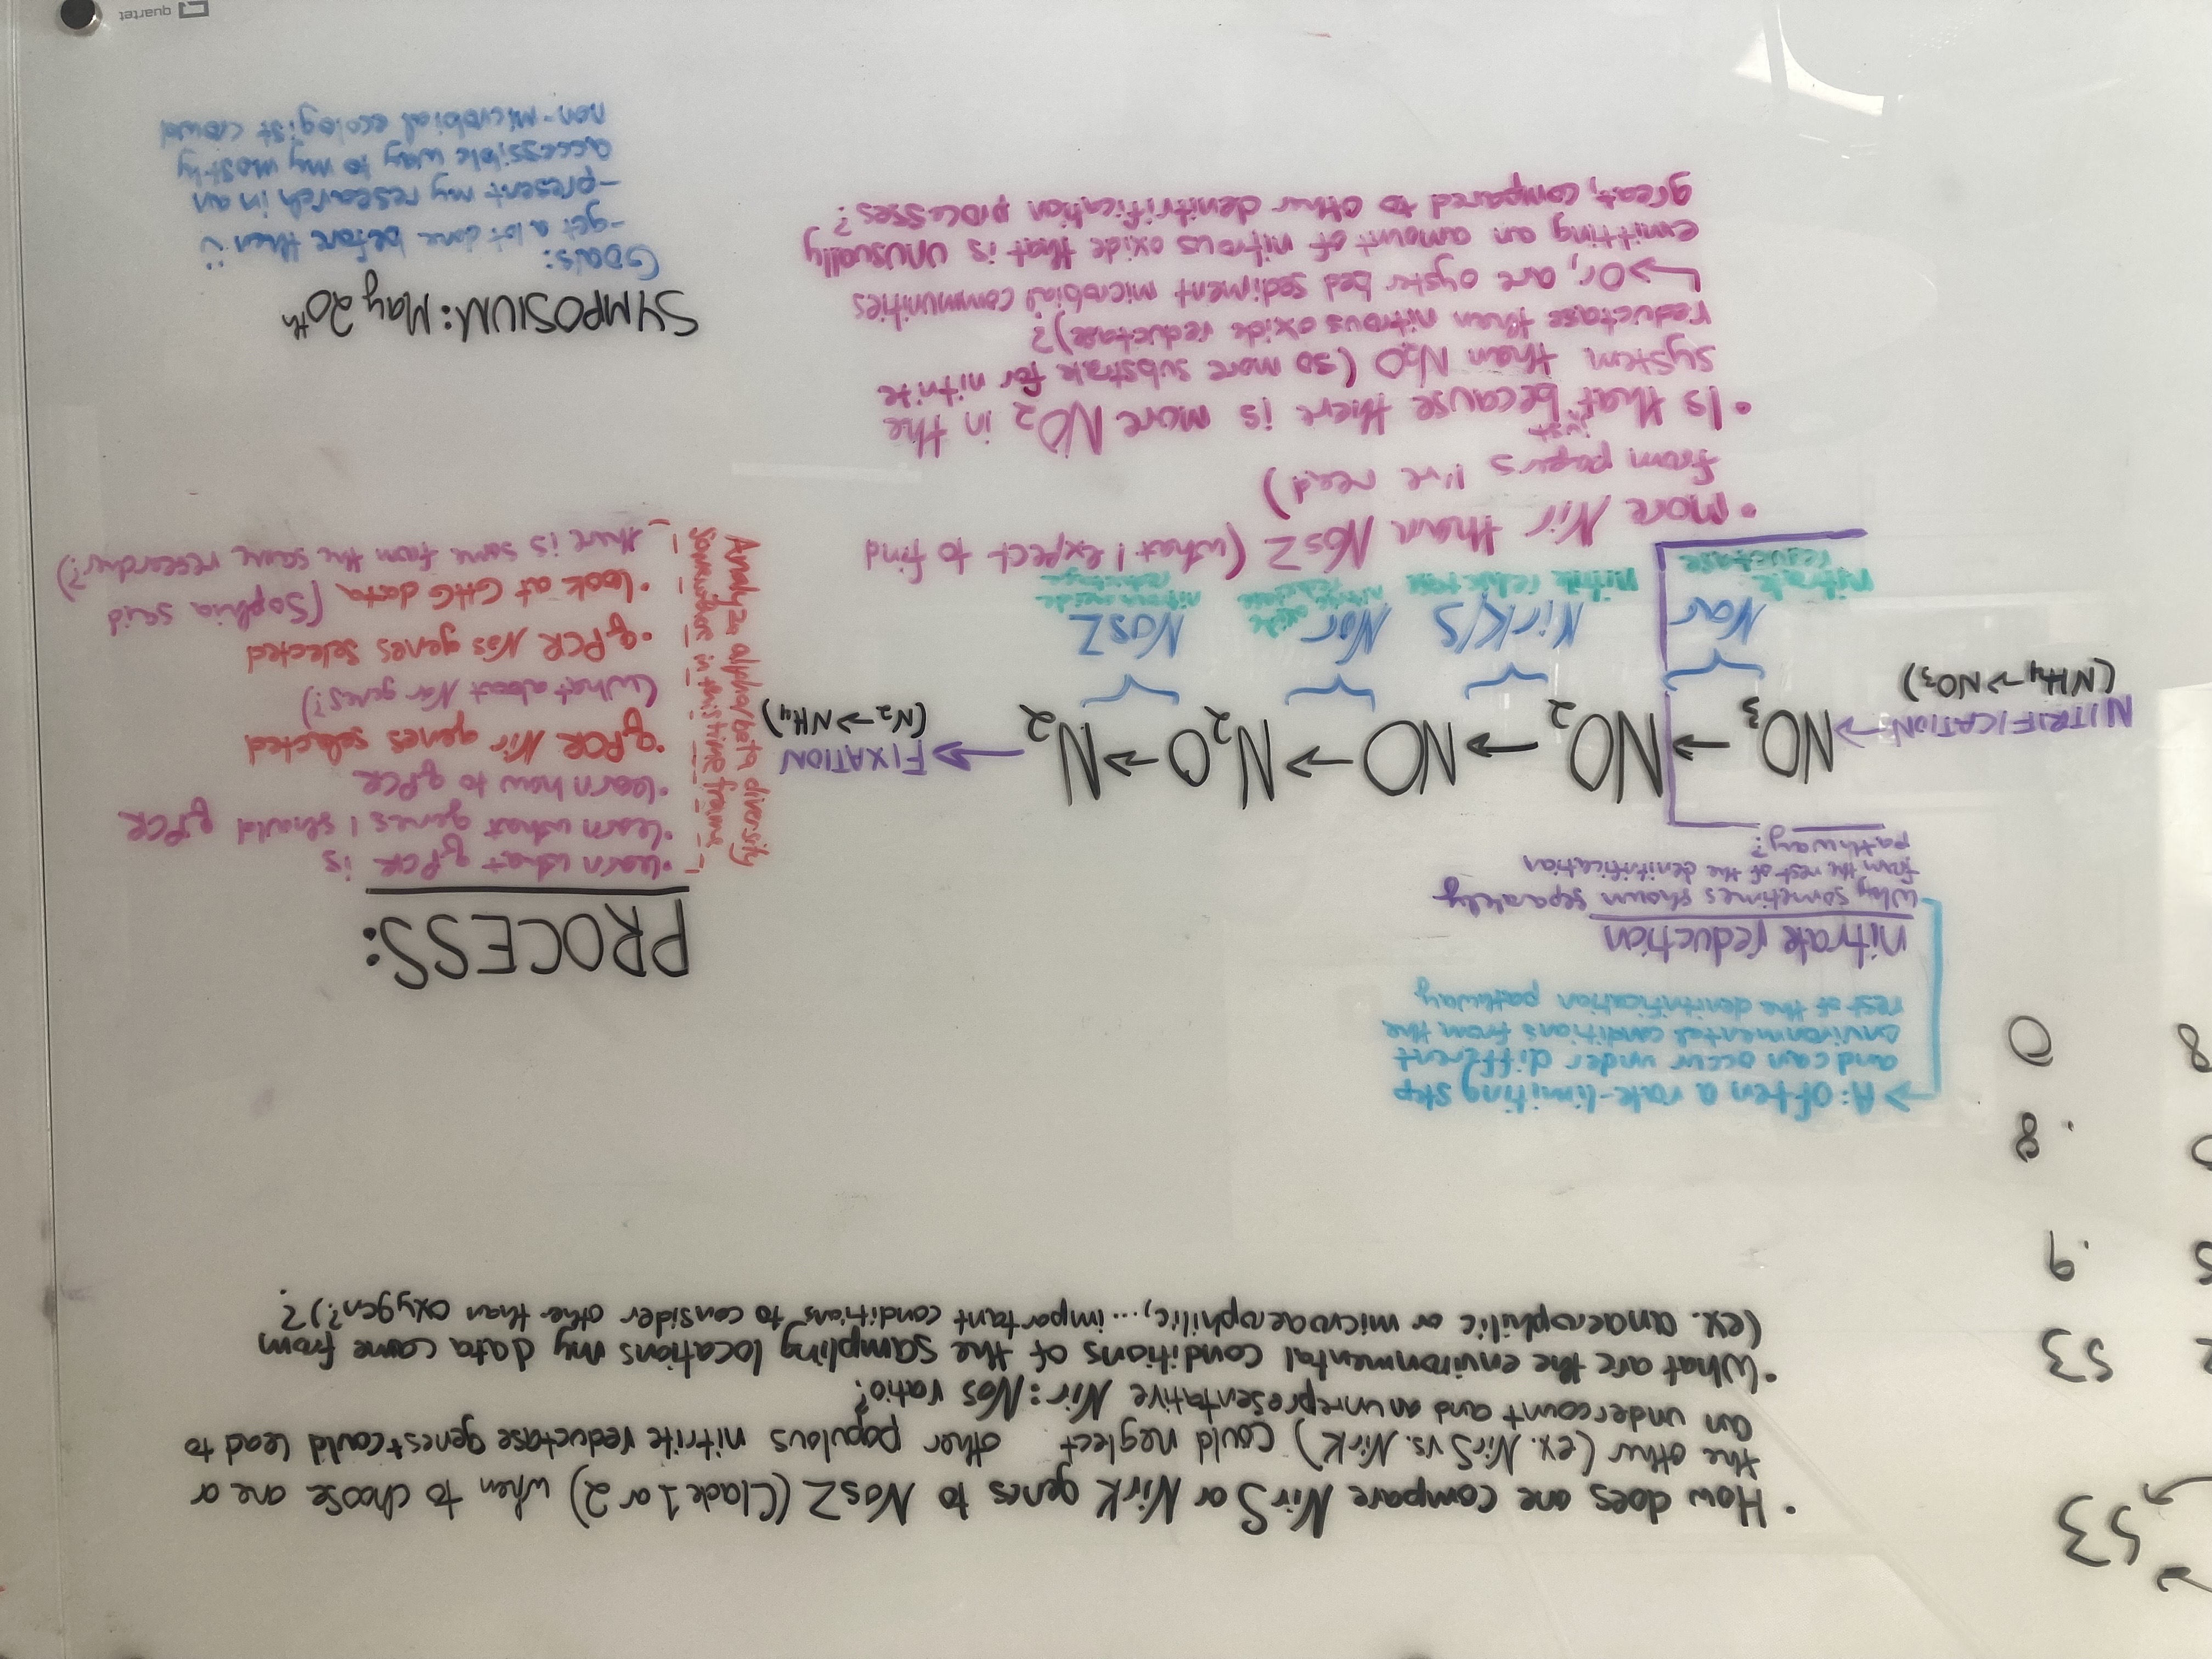 53
• How does one compare NirS or NirK genes to NosZ (Clade 1 or 2) when to choose one or
the other (ex. NirS vs. NirK) could neglect other populous nitrite reductase genes + could lead to
an undercount and an unrepresentative Nir:Nos ratio?
• What are the environmental conditions of the sampling locations my data came from
(ex. anaerophilic or microaerophilic,... important conditions to consider other than oxygen?)?
53
.9
.8
8 0
→ A: often a rate-limiting step
and can occur under different
environmental conditions from the
rest of the denitrification pathway
nitrate reduction
Why sometimes shown separately
from the rest of the denitrification
pathway?
NITRIFICATION → NO3 → NO2 → NO → N2O → N2 → FIXATION
(NH4→NO3)
(N2→NH4)
Nar NirK/S Nor NosZ
nitrate
reductase
nitrite reductase
nitric oxide
reductase
nitrous oxide
reductase
• more Nir than NosZ (what I expect to find
from papers I've read)
• Is that just because there is more NO2 in the
system than N2O (so more substrate for nitrite
reductase than nitrous oxide reductase)?
↳ Or, are oyster bed sediment microbial communities
emitting an amount of nitrous oxide that is unusually
great, compared to other denitrification processes?
PROCESS:
Analyze alpha/beta diversity
somewhere in this time frame
• learn what qPCR is
• learn what genes I should qPCR
• learn how to qPCR
• qPCR Nir genes selected
(What about Nor genes?)
• qPCR Nos genes selected
• look at GHG data (Sophia said
there is some from the same researcher?)
SYMPOSIUM: May 20th
Goals:
- get a lot done before then :)
- present my research in an
accessible way to my mostly
non-microbial ecologist crowd
quartet